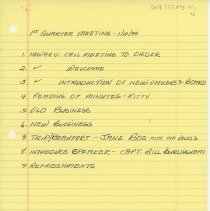 1st QUARTER MEETING - 1/6/94
1. HOWARD: CALL MEETING TO ORDER
2. ✓ WELCOME
3. ✓ INTRODUCTION OF NEW OFFICERS & BOARD
4. READING OF MINUTES - KITTY
5. OLD BUSINESS
6. NEW BUSINESS
7. TRIP/BEAUFORT - JANE BOS
8. INTRODUCE SPEAKER - CAPT BILL BURLINGHAM
9. REFRESHMENTS